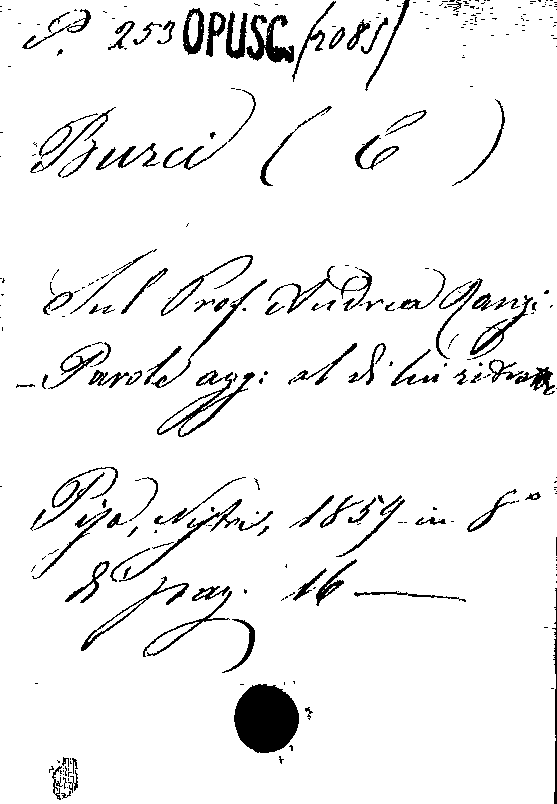 P. 253 OPUSC. (2085)
Burci ( C )
Sul Prof. Andrea Ranzi.
- Parole agg: al di lui ritratto
Pisa, Nistri, 1859 in 8°
di pag. 16 —